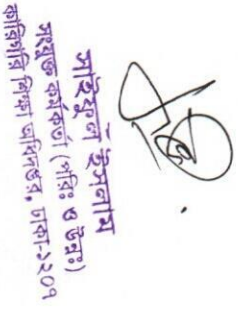 সাইফুল ইসলাম
সংযুক্ত কর্মকর্তা (পরিঃ ও উন্নঃ)
কারিগরি শিক্ষা অধিদপ্তর, ঢাকা-১২০৭